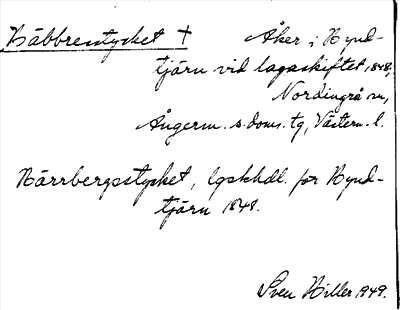 Häbbrestycket † Åker i Hynd-
tjärn vid lagaskiftet 1848,
Nordingrå sn,
Ångerm. s. doms. tg, Västern. l.
Härrbergsstycket, lgskhdl. för Hynd-
tjärn 1848.
Sven Hiller 1949.